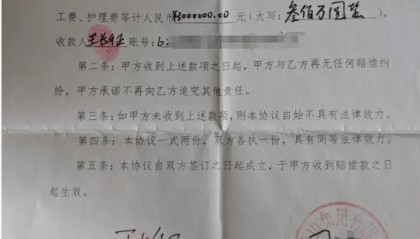 工费、护理费等计人民币¥3000000.00元(大写:叁佰万圆整),
收款人王长征 账号:6
第二条:如甲方收到上述款项之日起,甲方与乙方再无任何赔偿纠
纷,甲方承诺不再向乙方追究其他责任。
第三条:如甲方未收到上述款项,则本协议自始不具有法律效力。
第四条:本协议一式两份,双方各执一份,具有同等法律效力。
第五条:本协议自双方签订之日起成立,于甲方收到赔偿款之日
起生效。